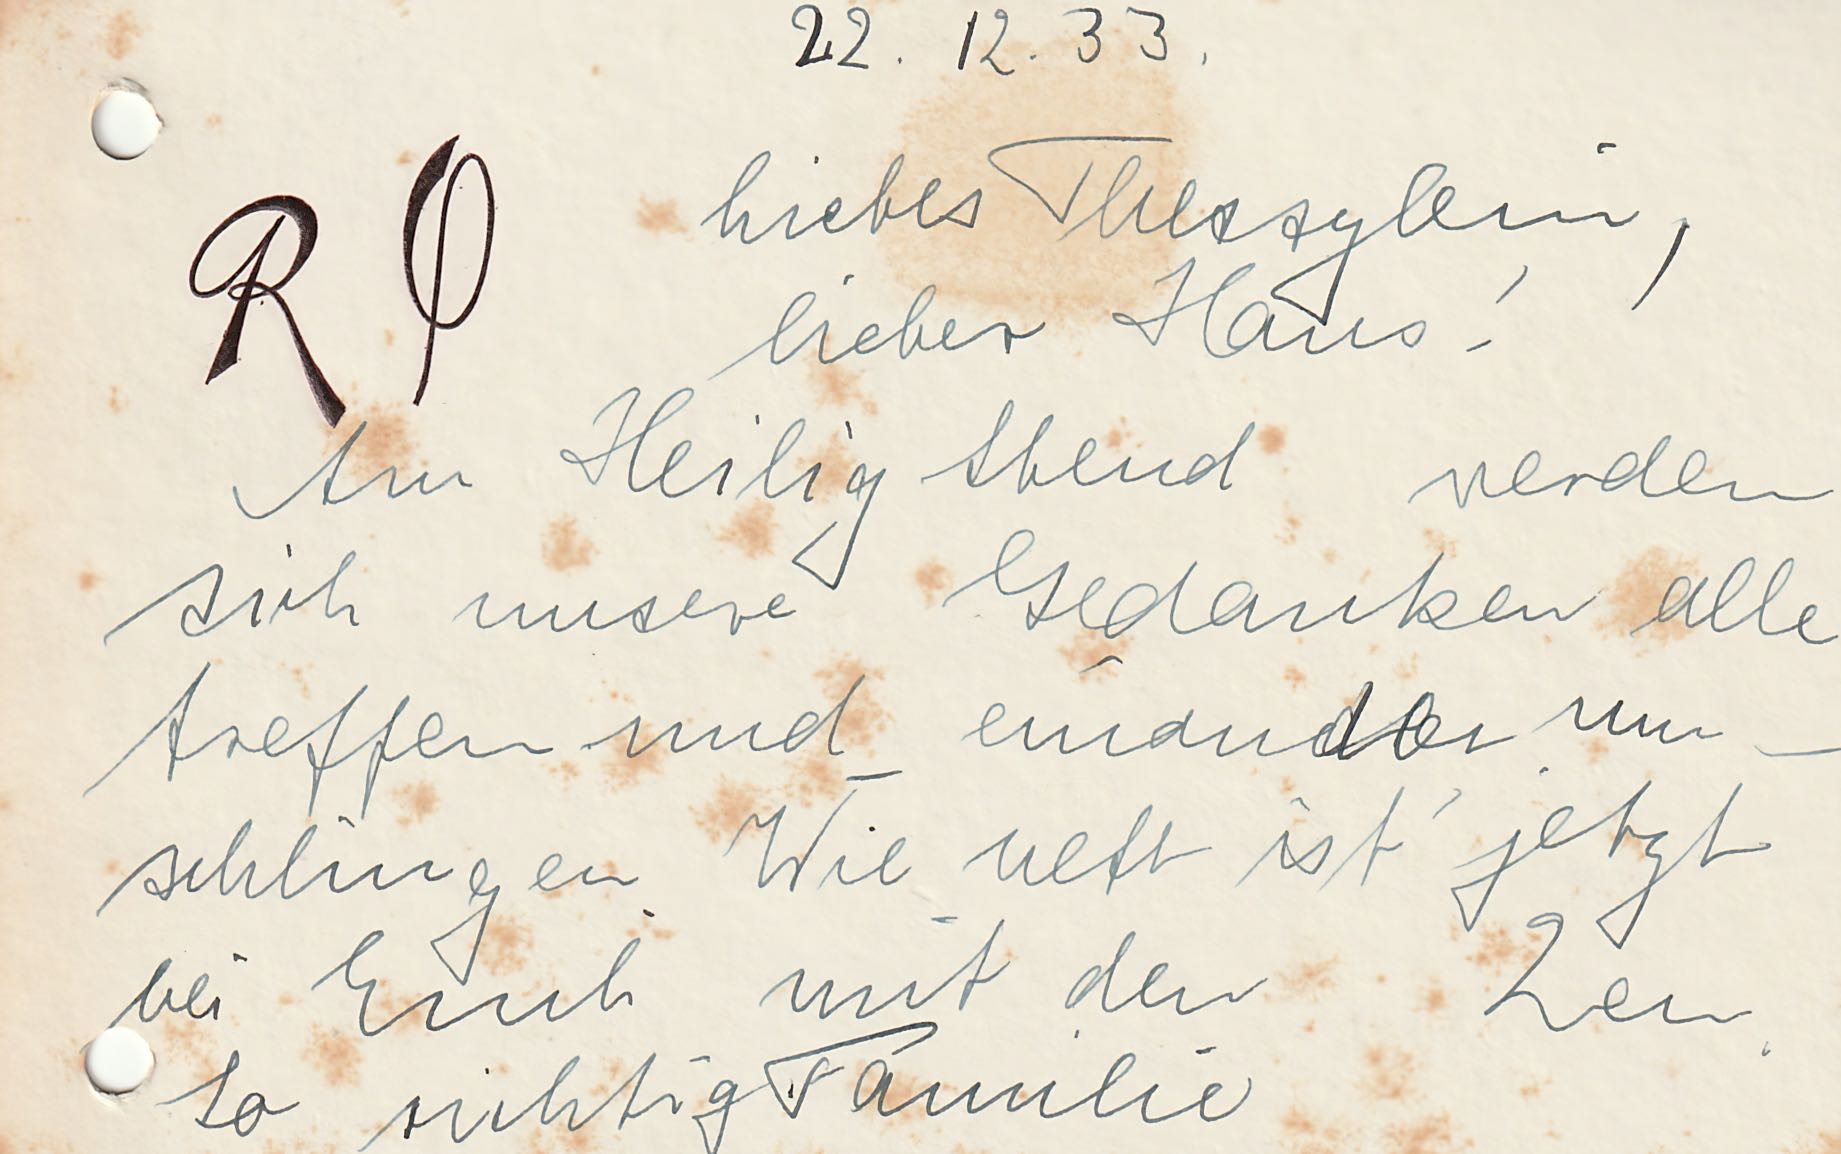 22. 12. 33.
R O
Liebes Thesszylein,
lieber Hans!
Am Heilig Abend werden
sich unsere Gedanken alle
treffen und einander um-
schlingen. Wie nett ist jetzt
bei Euch mit den Zen.
So richtig Familie